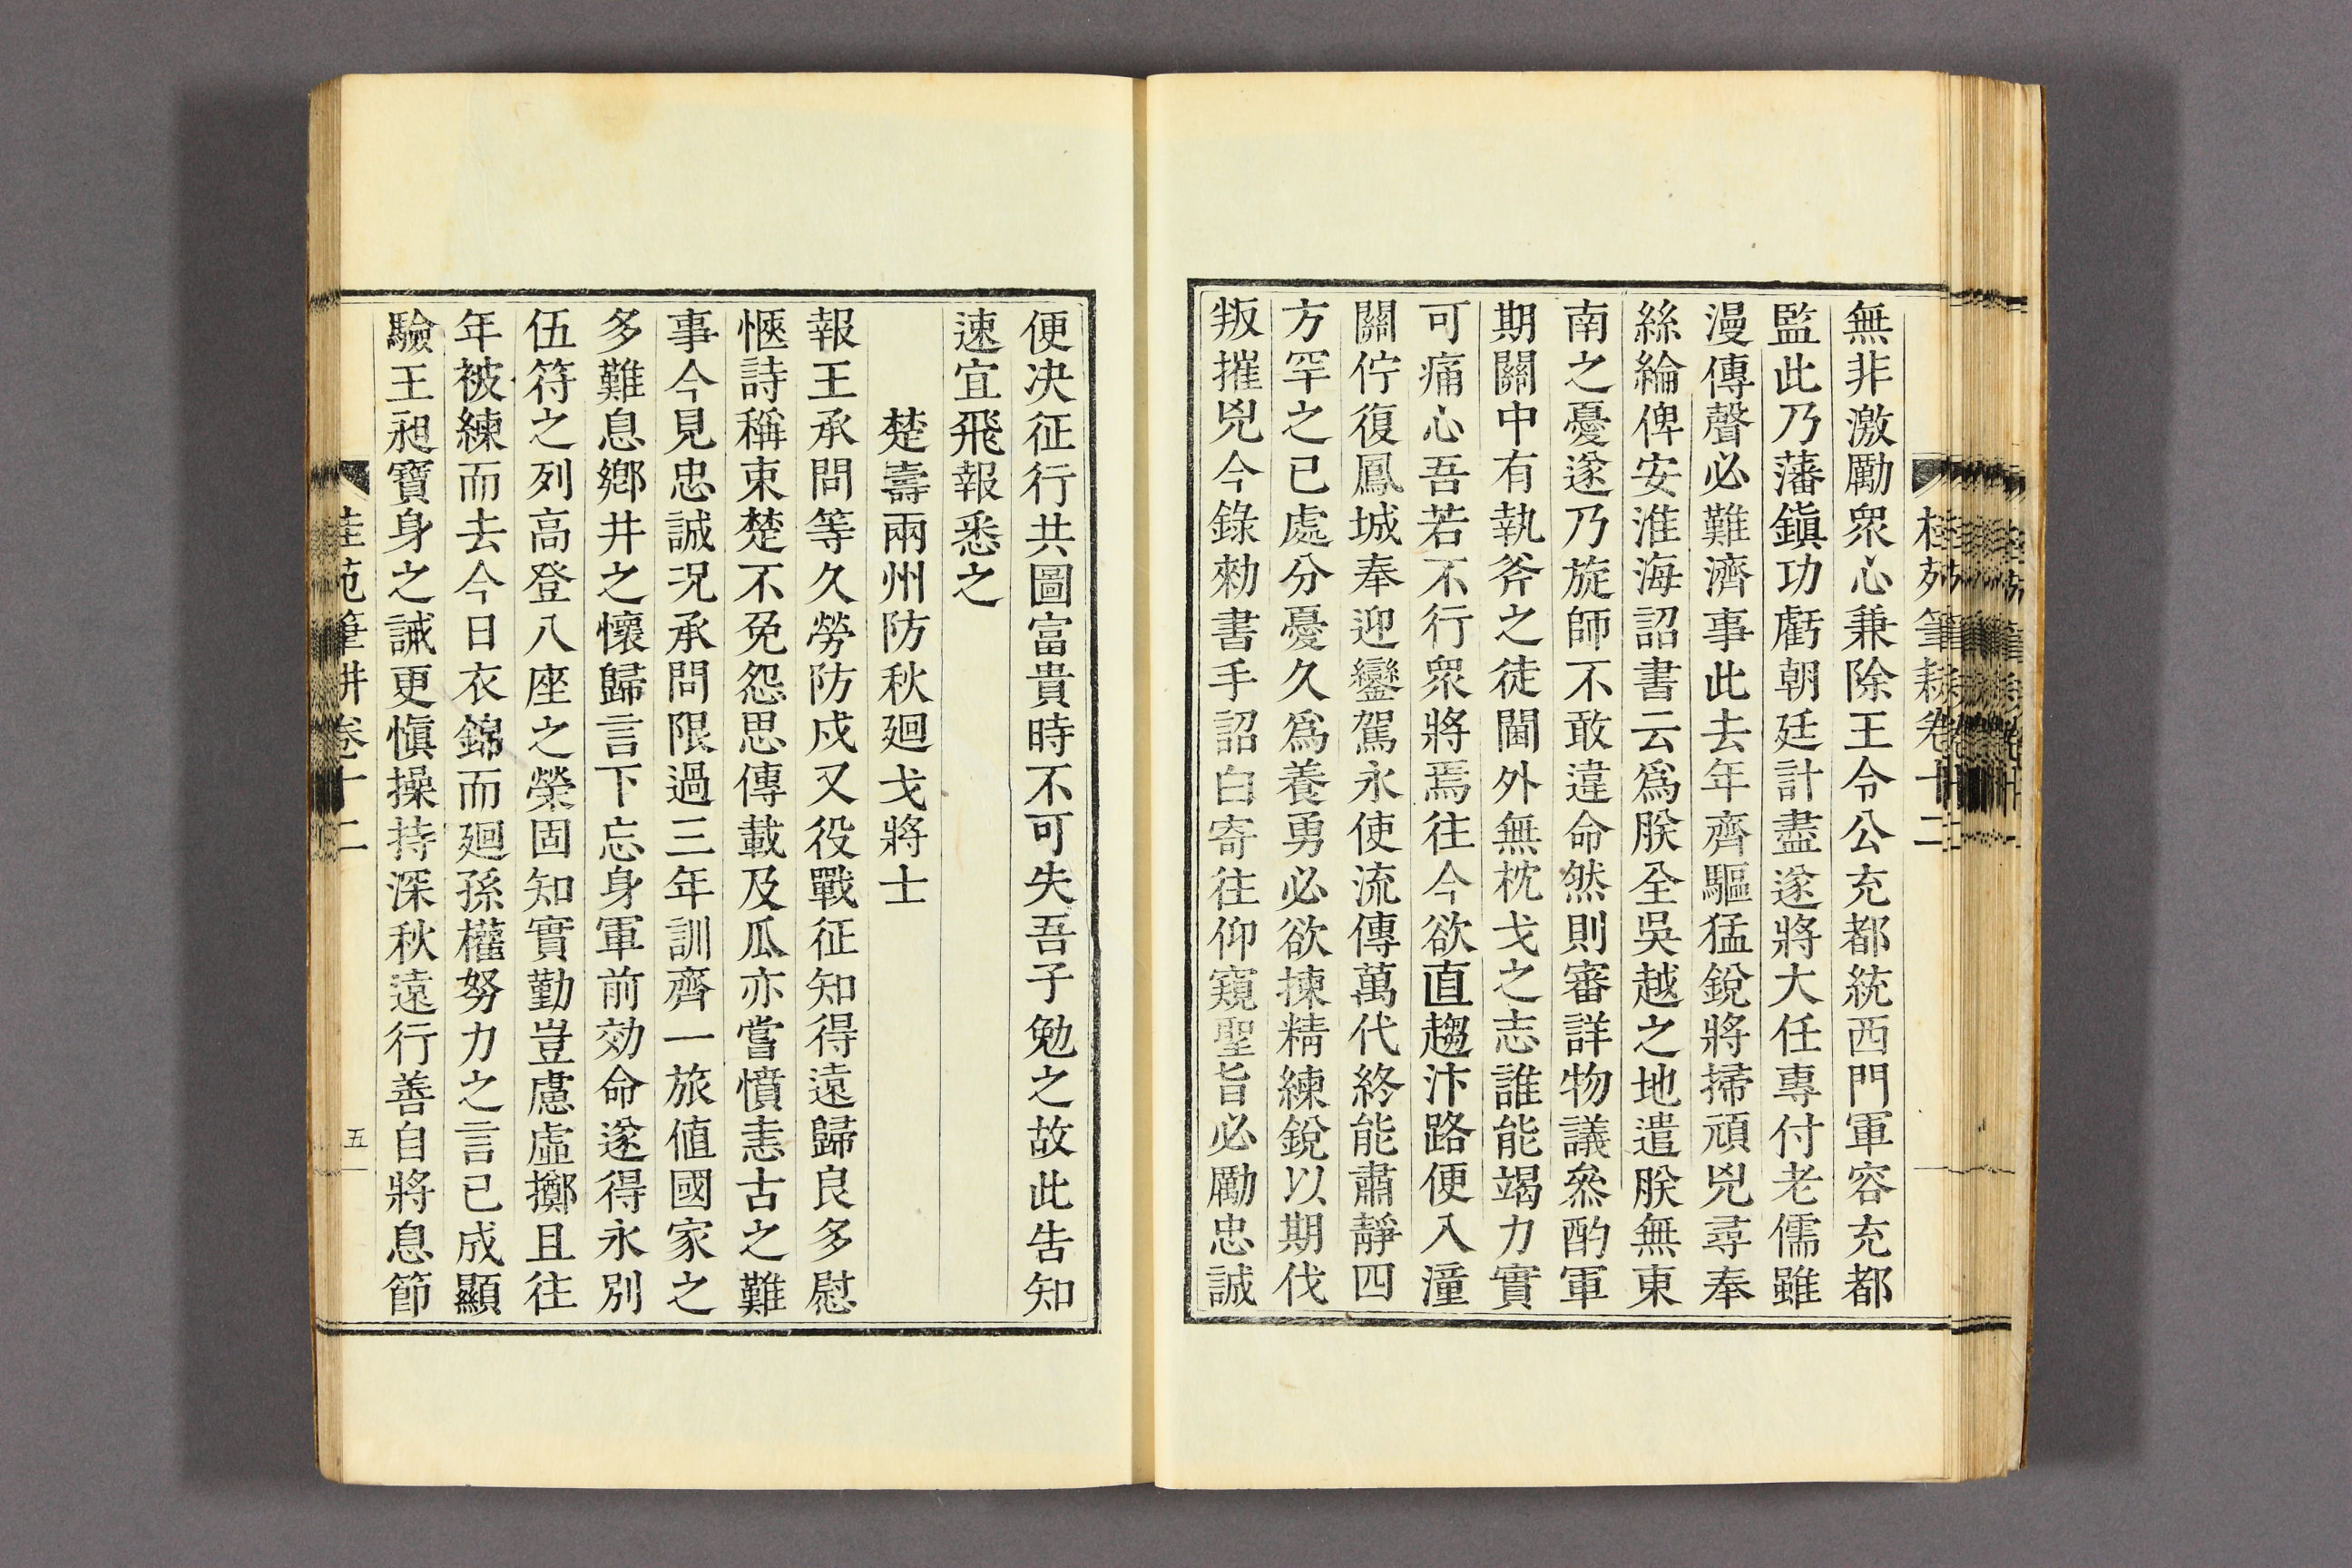 無非激勵衆心兼除王令公充都統西門軍容充都
監此乃藩鎮功虧朝廷計盡遂將大任專付老儒雖
漫傳聲必難濟事此去年齊驅猛銳將掃頑兇尋奉
絲綸俾安淮海詔書云爲朕全吳越之地遣朕無東
南之憂遂乃旋師不敢違命然則審詳物議叅酌軍
期關中有執斧之徒閫外無枕戈之志誰能竭力實
可痛心吾若不行衆將焉往今欲直趨汴路便入潼
關佇復鳳城奉迎鑾駕永使流傳萬代終能肅靜四
方罕之已處分憂久爲養勇必欲揀精練銳以期伐
叛摧兇今錄勑書手詔白寄往仰窺聖旨必勵忠誠
便決征行共圖富貴時不可失吾子勉之故此告知
速宜飛報悉之
楚壽兩州防秋廻戈將士
報王承問等久勞防戍又役戰征知得遠歸良多慰
愜詩稱束楚不免怨思傳載及瓜亦嘗憤恚古之難
事今見忠誠况承問限過三年訓齊一旅値國家之
多難息鄉井之懷歸言下忘身軍前効命遂得永別
伍符之列高登八座之榮固知實勤豈慮虛擲且往
年被練而去今日衣錦而廻孫權努力之言已成顯
驗王昶寶身之誡更愼操持深秋遠行善自將息節
桂苑筆耕卷十二
五